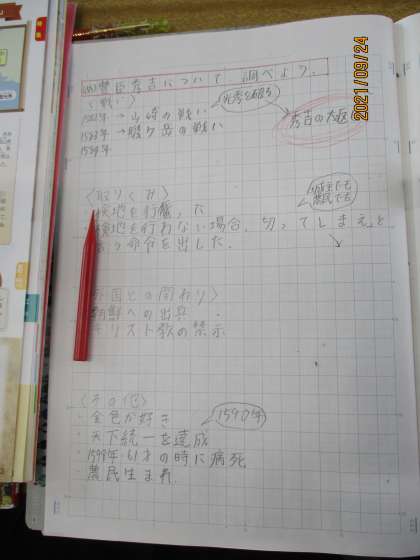 豊臣秀吉について調べよう。
2021/09/24
〈戦い〉
光秀を破る
1582年→山崎の戦い
秀吉の大
1583年→賤ヶ岳の戦い
1584年
〈取りくみ〉
検地を行った
検地を行わない場合、切ってしまえ、と
命令を出した.
城主でも
農民でも
〈外国との関わり〉
朝鮮への出兵
キリスト教の禁示
〈その他〉
・金色が好き
1590年
・天下統一を達成
・1598年61才の時に病死
・農民生まれ